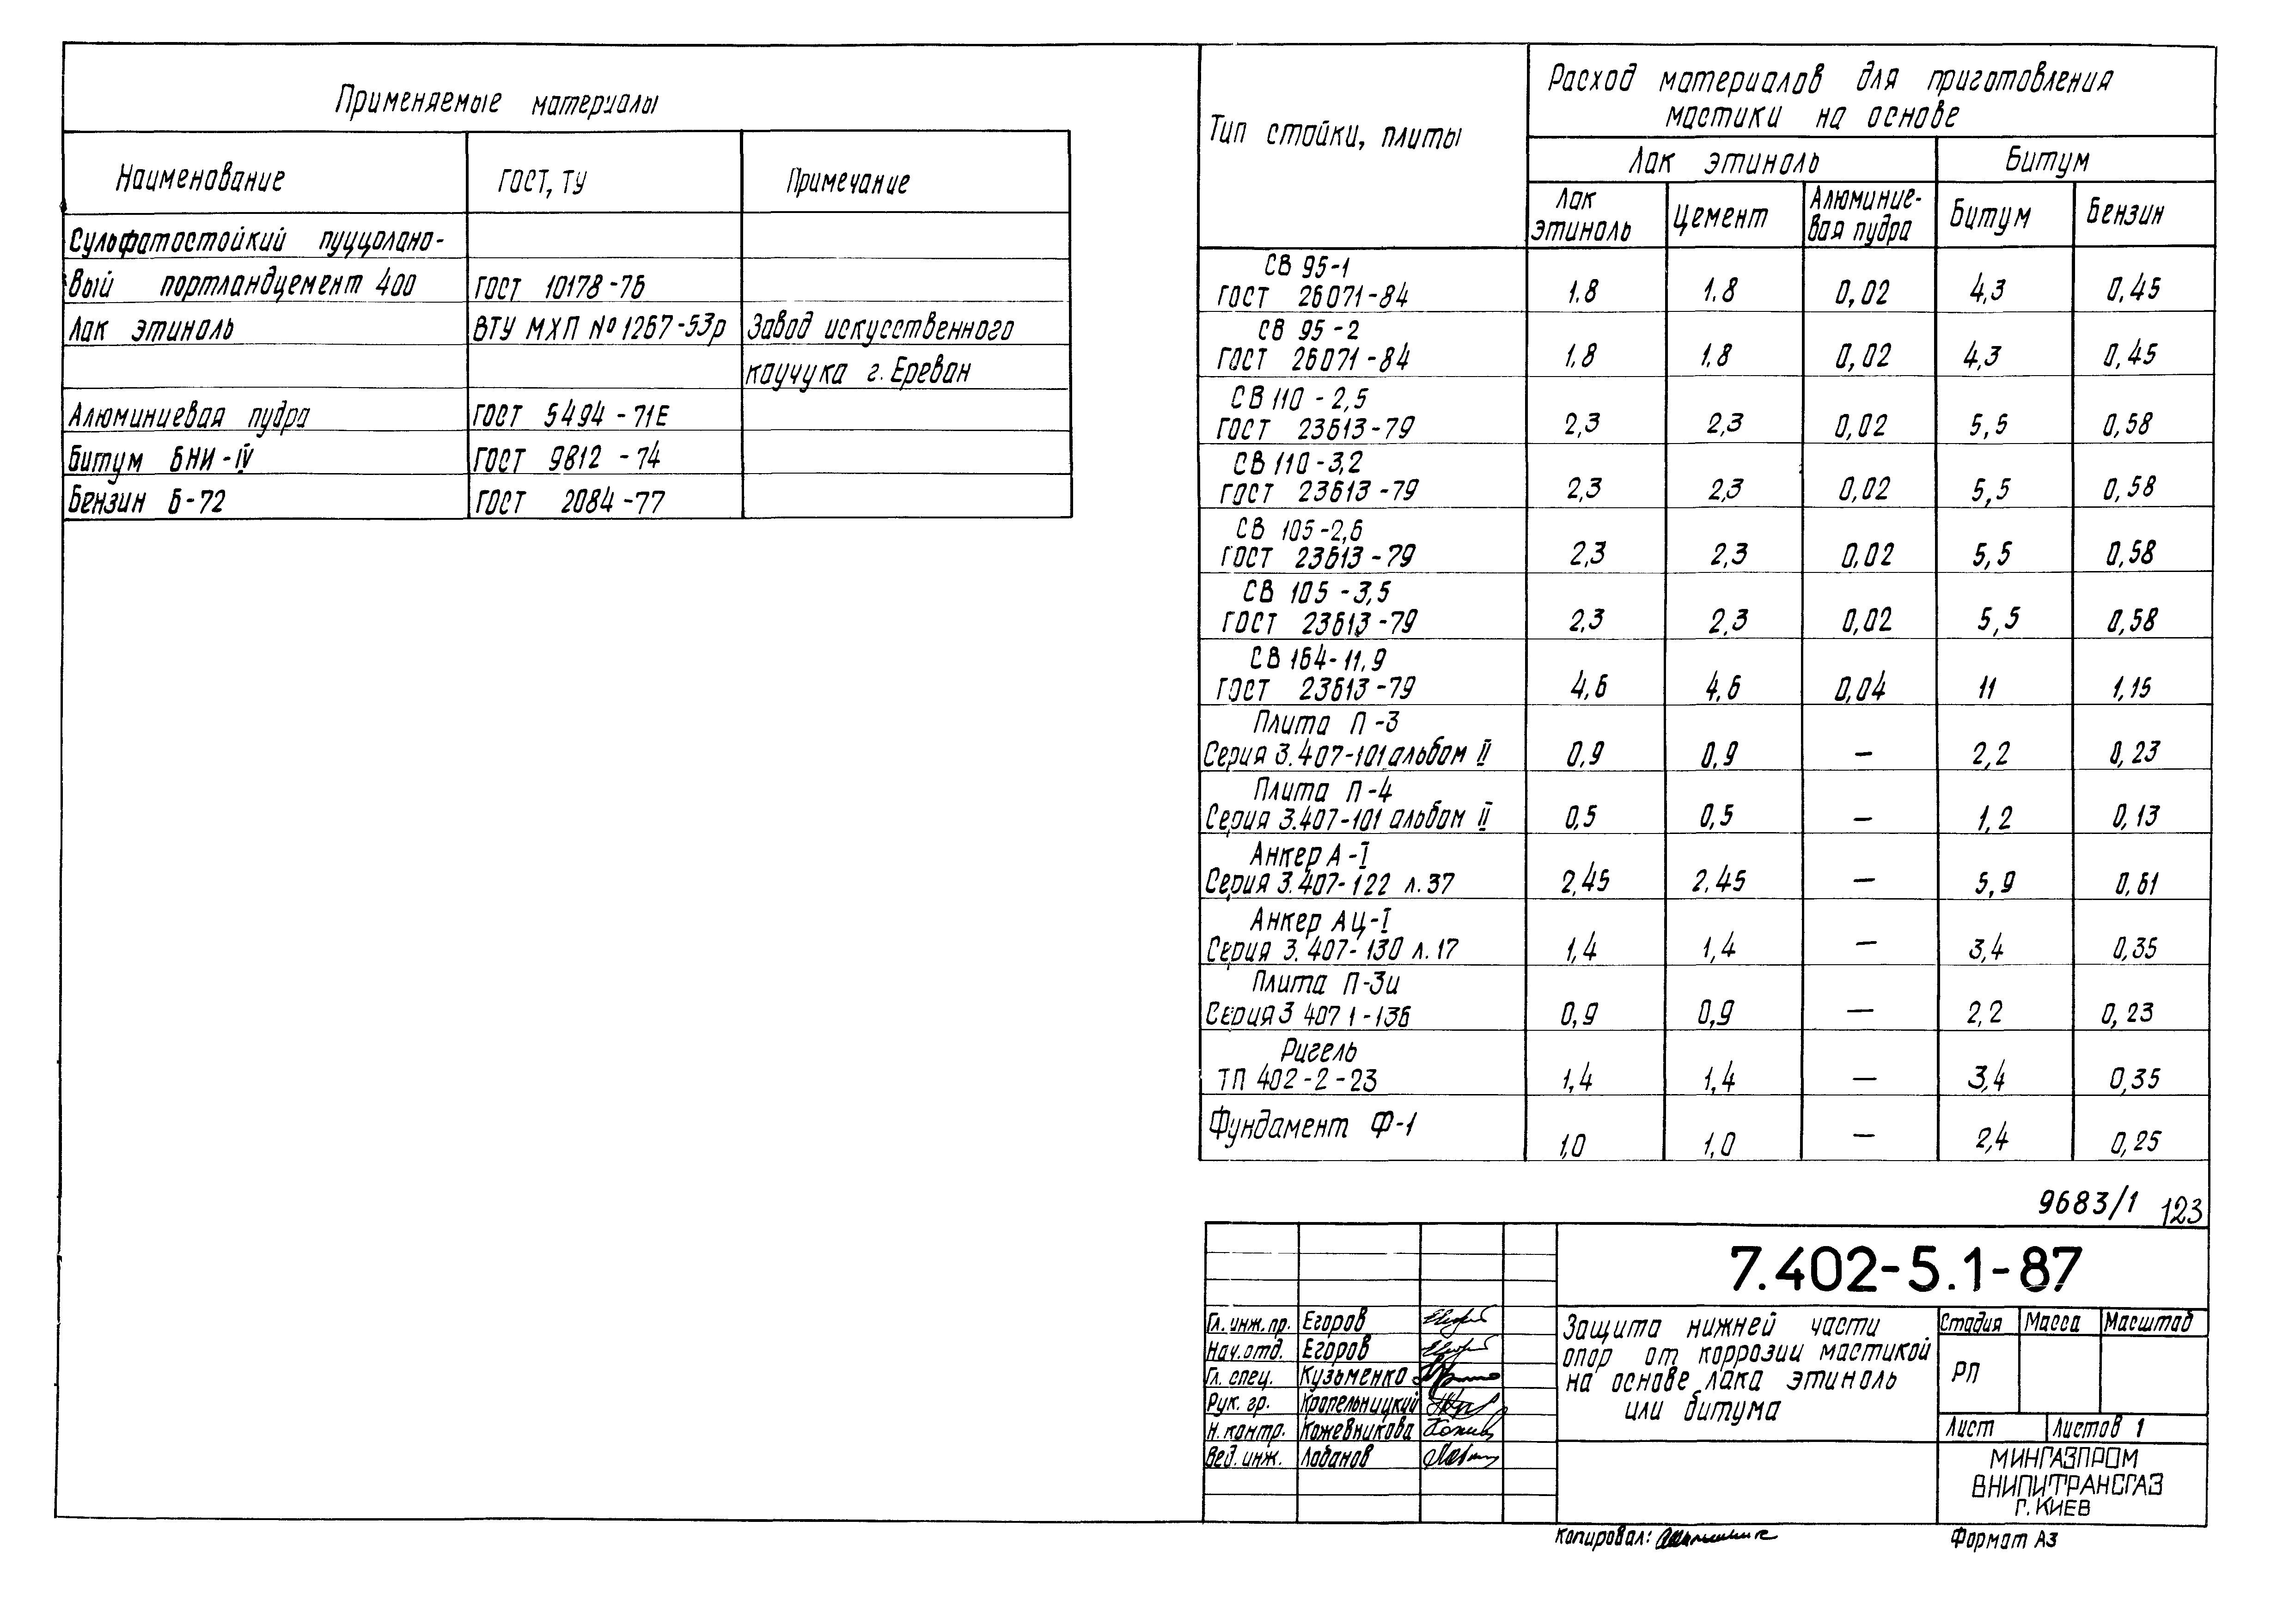 Применяемые материалы
Наименование ГОСТ, ТУ Примечание
Сульфатостойкий пуццолано-
вый портландцемент 400 ГОСТ 10178-76
Лак этиноль ВТУ МХП №1267-53р Завод искусственного
каучука г. Ереван
Алюминиевая пудра ГОСТ 5494-71Е
Битум БНИ-IV ГОСТ 9812-74
Бензин Б-72 ГОСТ 2084-77
Тип стойки, плиты
Расход материалов для приготовления
мастики на основе
Лак этиноль Битум
Лак этиноль Цемент Алюминие-вая пудра Битум Бензин
СВ 95-1
ГОСТ 26071-84 1.8 1.8 0,02 4,3 0,45
СВ 95-2
ГОСТ 26071-84 1,8 1,8 0,02 4,3 0,45
СВ 110-2,5
ГОСТ 23613-79 2,3 2,3 0,02 5,5 0,58
СВ 110-3,2
ГОСТ 23613-79 2,3 2,3 0,02 5,5 0,58
СВ 105-2,6
ГОСТ 23613-79 2,3 2,3 0,02 5,5 0,58
СВ 105-3,5
ГОСТ 23613-79 2,3 2,3 0,02 5,5 0,58
СВ 164-11,9
ГОСТ 23613-79 4,6 4,6 0,04 11 1,15
Плита П-3
Серия 3.407-101 альбом II 0,9 0,9 — 2,2 0,23
Плита П-4
Серия 3.407-101 альбом II 0,5 0,5 — 1,2 0,13
Анкер А-I
Серия 3.407-122 л.37 2,45 2,45 — 5,9 0,61
Анкер АЦ-I
Серия 3.407-130 л.17 1,4 1,4 — 3,4 0,35
Плита П-3и
Серия 3 407 1-136 0,9 0,9 — 2,2 0,23
Ригель
ТП 402-2-23 1,4 1,4 — 3,4 0,35
Фундамент Ф-1 1,0 1,0 — 2,4 0,25
9683/1 123
7.402-5.1-87
Гл. инж. пр. Егоров
Нач. отд. Егоров
Гл. спец. Кузьменко
Рук. гр. Кропельницкий
Н. контр. Кожевникова
Вед. инж. Лабанов
Защита нижней части
опор от коррозии мастикой
на основе лака этиноль
или битума
Стадия Масса Масштаб
РП
Лист Листов 1
МИНГАЗПРОМ
ВНИПИТРАНСГАЗ
Г. КИЕВ
Копировал:
Формат А3